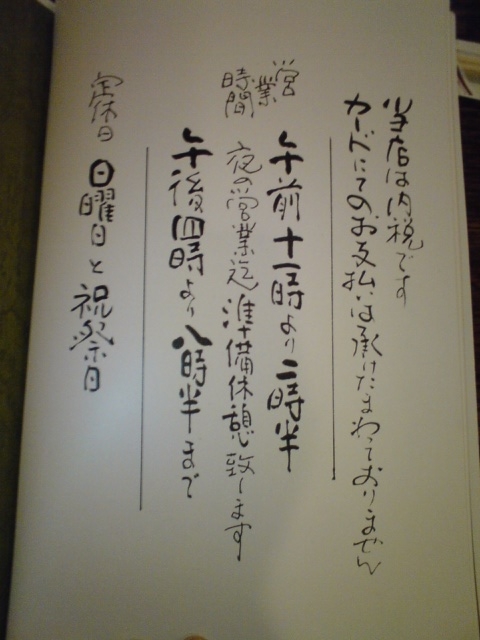 当店は内税です
カードにてのお支払いは承けたまわっておりません
営業時間
午前十一時より二時半
夜の営業迄準備休憩致します
午後四時より八時半まで
定休日
日曜日と祝祭日